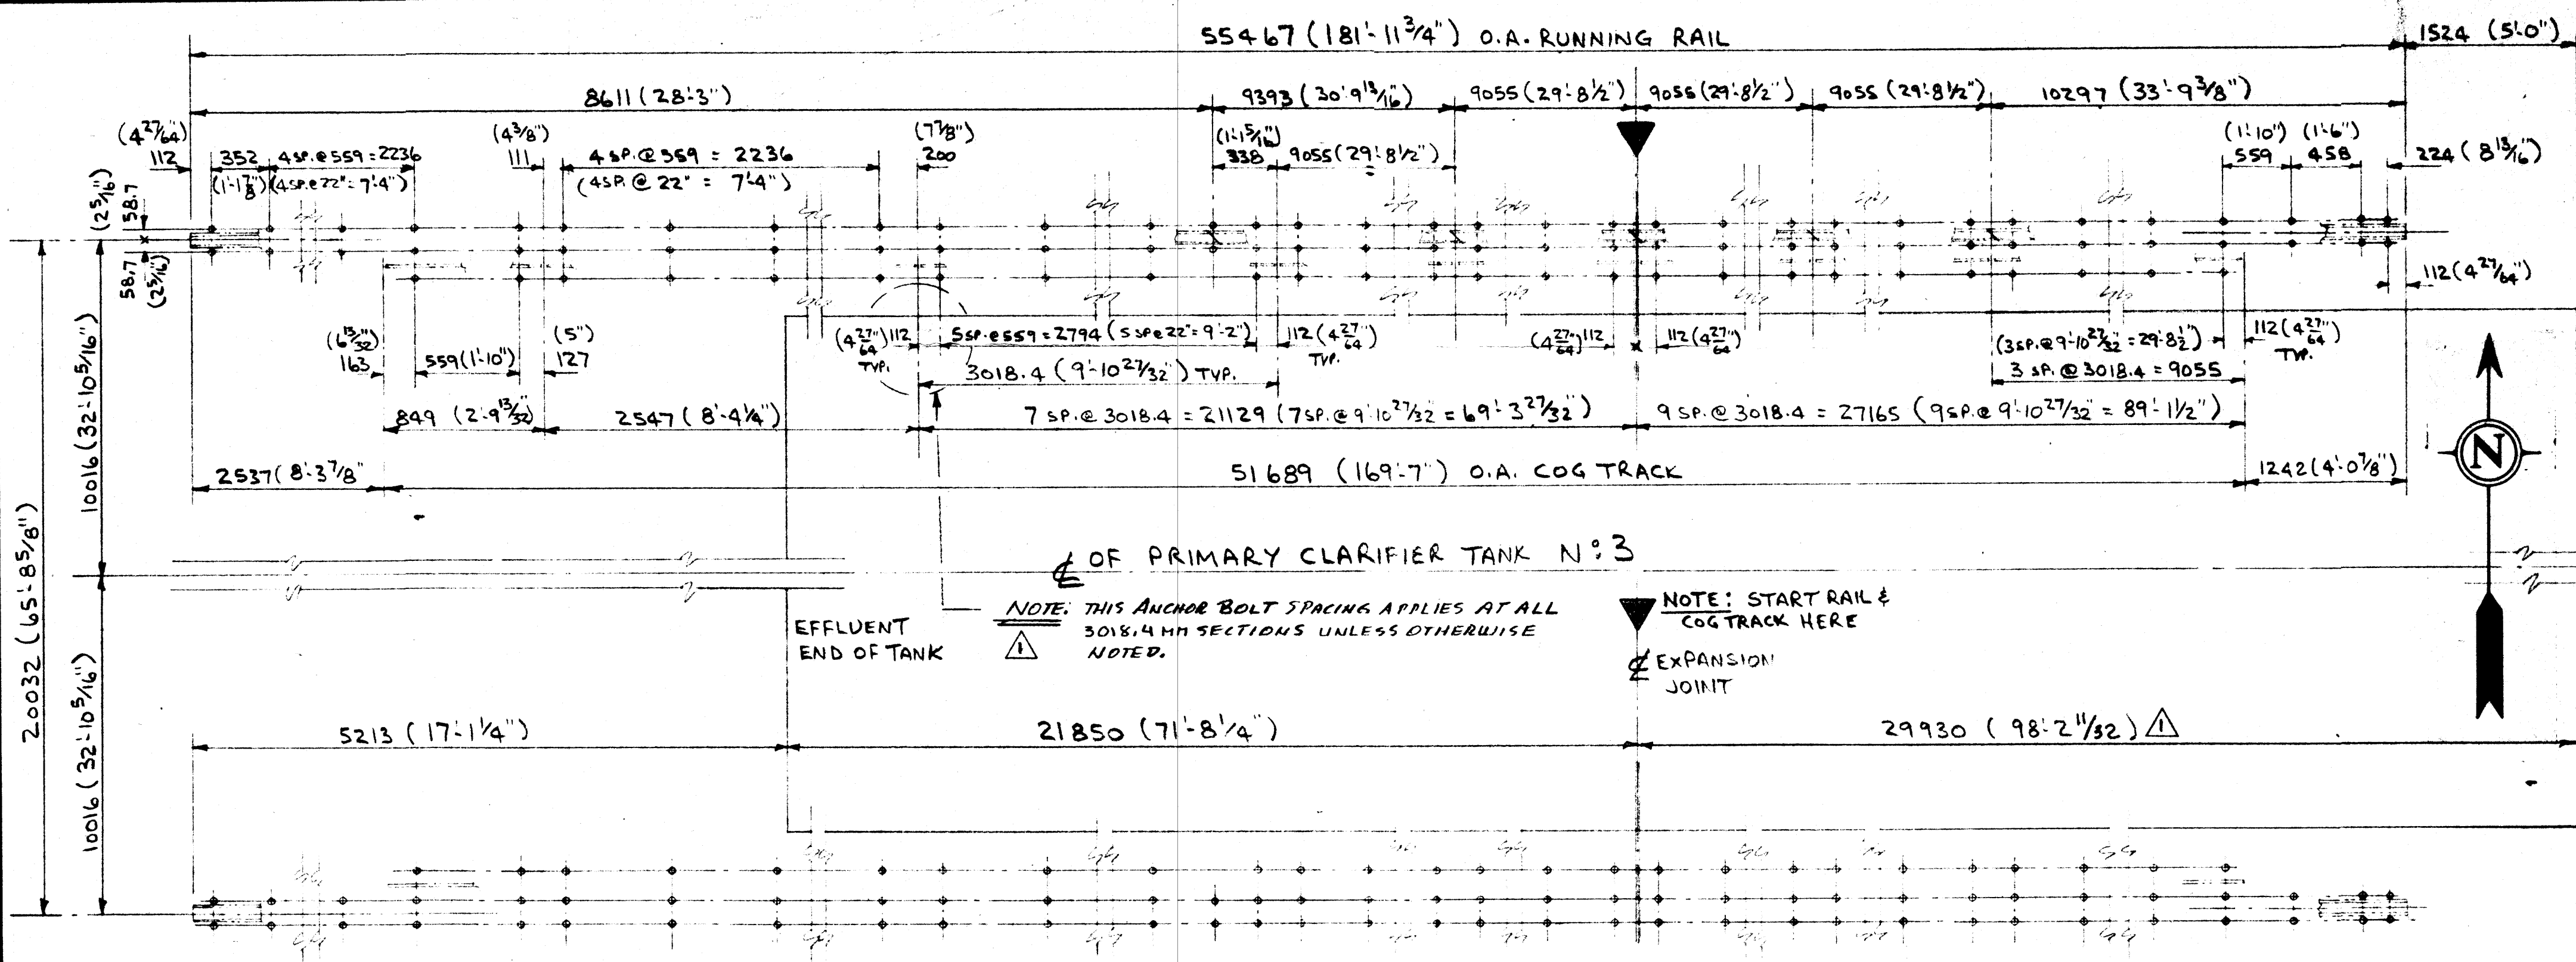 55467 (181'-11 3/4") O.A. RUNNING RAIL
1524 (5'-0")
8611 (28'-3")
9393 (30'-9 13/16")
9055 (29'-8 1/2")
9055 (29'-8 1/2")
9055 (29'-8 1/2")
10297 (33'-9 3/8")
(4 27/64)
112
352
(1'-1 7/8")
4 SP. @ 559 = 2236
(4 SP. @ 22" = 7'-4")
(4 3/8")
111
4 SP. @ 559 = 2236
(4 SP. @ 22" = 7'-4")
(7 7/8")
200
(1'-1 5/16")
338
9055 (29'-8 1/2")
(1'-10")
559
(1'-6")
458
224 (8 13/16")
(2 5/16")
58.7
58.7
(2 5/16")
112 (4 27/64")
(6 13/32")
163
559 (1'-10")
(5")
127
(4 27/64") 112
TYP.
5 SP. @ 559 = 2794 (5 SP @ 22" = 9'-2")
112 (4 27/64")
TYP.
(4 27/64") 112
112 (4 27/64")
(3 SP. @ 9'-10 27/32" = 29'-8 1/2")
3 SP. @ 3018.4 = 9055
112 (4 27/64")
TYP.
3018.4 (9'-10 27/32") TYP.
849 (2'-9 13/32")
2547 (8'-4 1/4")
7 SP. @ 3018.4 = 21129 (7 SP. @ 9'-10 27/32" = 69'-3 27/32")
9 SP. @ 3018.4 = 27165 (9 SP. @ 9'-10 27/32" = 89'-1 1/2")
2537 (8'-3 7/8"
51689 (169'-7") O.A. COG TRACK
1242 (4'-0 7/8")
N
10016 (32'-10 5/16")
20032 (65'-8 5/8")
10016 (32'-10 5/16")
℄ OF PRIMARY CLARIFIER TANK Nº 3
EFFLUENT
END OF TANK
NOTE: THIS ANCHOR BOLT SPACING APPLIES AT ALL
3018.4 MM SECTIONS UNLESS OTHERWISE
NOTED.
1
NOTE: START RAIL &
COG TRACK HERE
℄ EXPANSION
JOINT
5213 (17'-1 1/4")
21850 (71'-8 1/4")
29930 (98'-2 11/32) 1